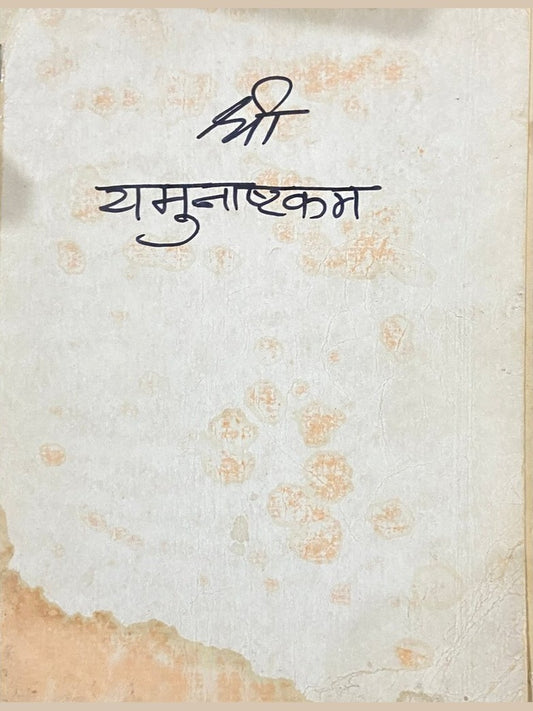 श्री
यमुनाष्टकम